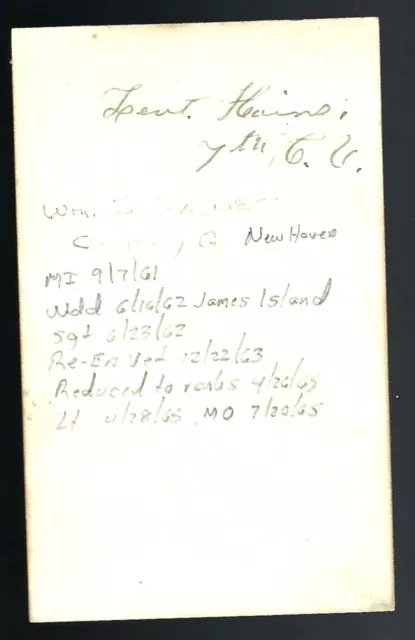 Leut. Hains.
7th, C. V.
Wm.
Company New Haven
MI 9/7/61
Wdd 6/16/62 James Island
Sgt 6/23/62
Re-En Vet 12/22/63
Reduced to ranks 4/26/65
Lt 4/28/65, MO 7/20/65